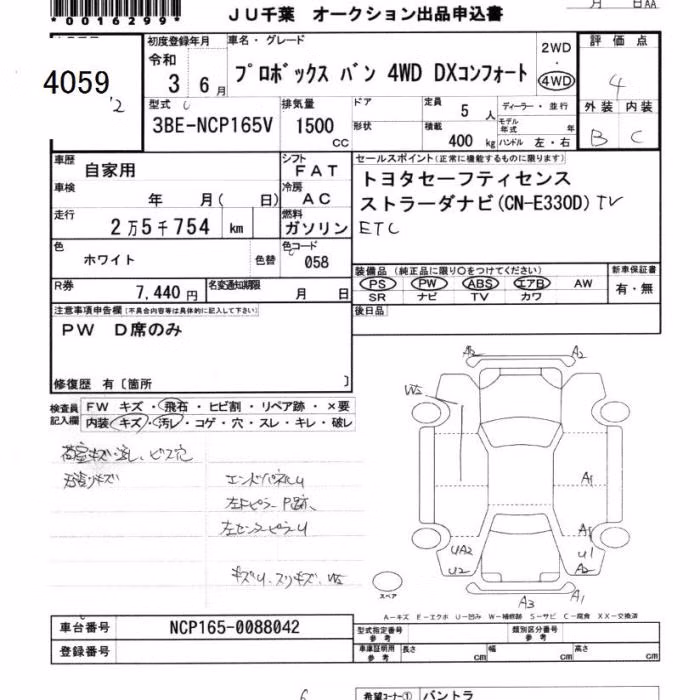 *0016299*
JU千葉 オークション出品申込書
月 日AA
4059
'2
初度登録年月
令和
3 6月
車名・グレード
プロボックス バン 4WD DXコンフォート
2WD
・
4WD
評価点
4
外装 内装
B C
型式
3BE-NCP165V
排気量
1500 CC
ドア
形状
定員 5 人
積載 400 kg
ディーラー・並行
モデル年式 年
ハンドル 左・右
車歴 自家用
シフト FAT
セールスポイント(正常に機能するものに限ります)
車検 年 月( 日)
冷房 AC
トヨタセーフティセンス
ストラーダナビ(CN-E330D) TV
ETC
走行 2万5千754 km
燃料 ガソリン
色 ホワイト 色替
色コード 058
装備品 (純正品に限り○をつけてください)
新車保証書
PS PW ABS エアB AW
有・無
SR ナビ TV カワ
R券 7,440円
名変通知期限 月 日
後日品
注意事項申告欄 (不具合内容等は具体的に記入して下さい)
PW D席のみ
修復歴 有〔箇所 〕
検査員記入欄
FW キズ・飛石・ヒビ割・リペア跡・×要
内装 キズ・汚レ・コゲ・穴・スレ・キレ・破レ
荷室キズ・汚レ、ビス穴
エンドパネルU
左Fピラー P跡、
左センターピラーU
キズU、スリキズ、W2
A2 A2
W2
A1
A1
UA2
U1
U2
A2
A3 A1
スペア
A-キズ E-エクボ U-凹み W-補修跡 S-サビ C-腐食 XX-交換済
車台番号 NCP165-0088042
型式指定番号 参考
類別区分番号 参考
登録番号
車庫証明用 参考
長さ cm
幅 cm
高さ cm
希望コーナー① バントラ